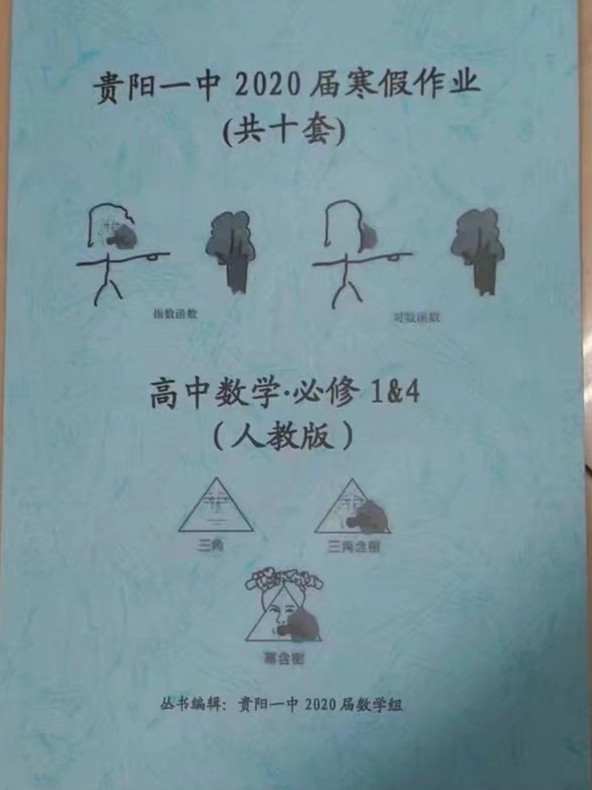 贵阳一中 2020 届寒假作业
(共十套)
指数函数
对数函数
高中数学·必修 1&4
(人教版)
三角
三角含樹
幂含樹
丛书编辑: 贵阳一中 2020 届数学组